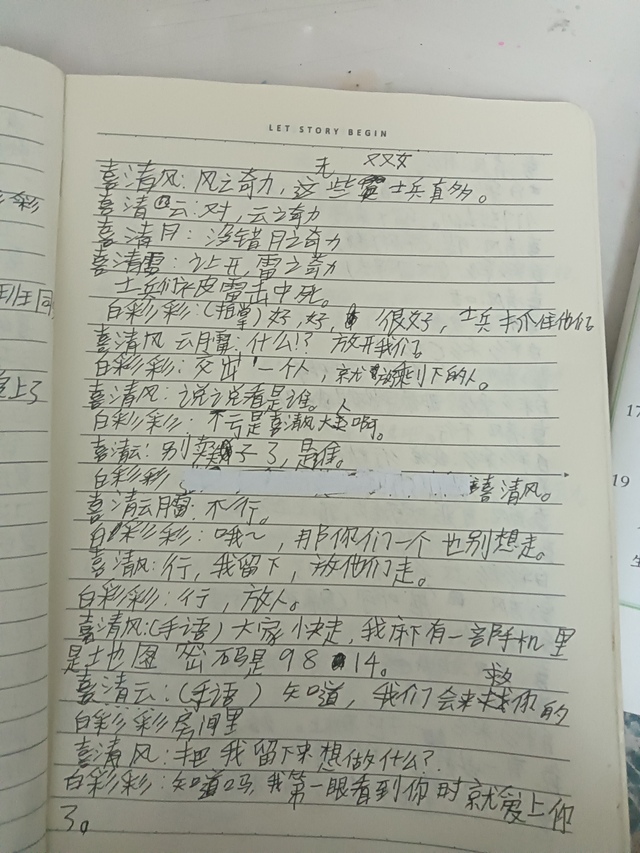 LET STORY BEGIN
无 又又女
喜清风:风之奇力,这些士兵真多。
喜清云:对,云之奇力
喜清月:没错月之奇力
喜清雷:让开,雷之奇力
士兵们皮雷击中死。
白彩彩:(拍掌)好,好,很好,士兵抓住他们
喜清风云月雷:什么!?放开我们
白彩彩:交出一个人,就放剩下的人。
喜清风:说说看是谁。
白彩彩:不亏是喜清风大人啊。
喜清云:别卖关子了,是谁。
白彩彩 喜清风。
喜清云月雷:不行。
白彩彩:哦~,那你们一个也别想走。
喜清风:行,我留下,放他们走。
白彩彩:行,放人。
喜清风:(手语)大家快走,我床下有一部手机里
是地图 密码是98 14。
喜清云:(手语)知道,我们会来救你的
白彩彩房间里
喜清风:把我留下来想做什么?
白彩彩:知道吗,我第一眼看到你时就爱上你
了。
彩彩
班班同
上了
17
19